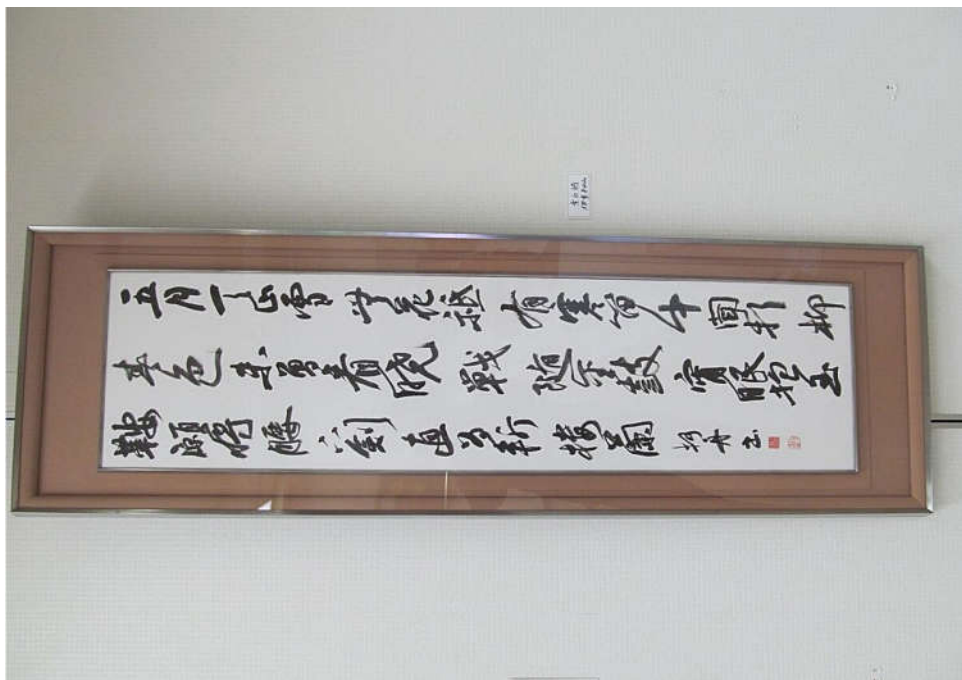 五月天山雪無花祇有寒笛中聞折柳
春色未曾看曉戰隨金鼓宵眠抱玉
鞍願將腰下劍直為斬樓蘭 書
李白詩